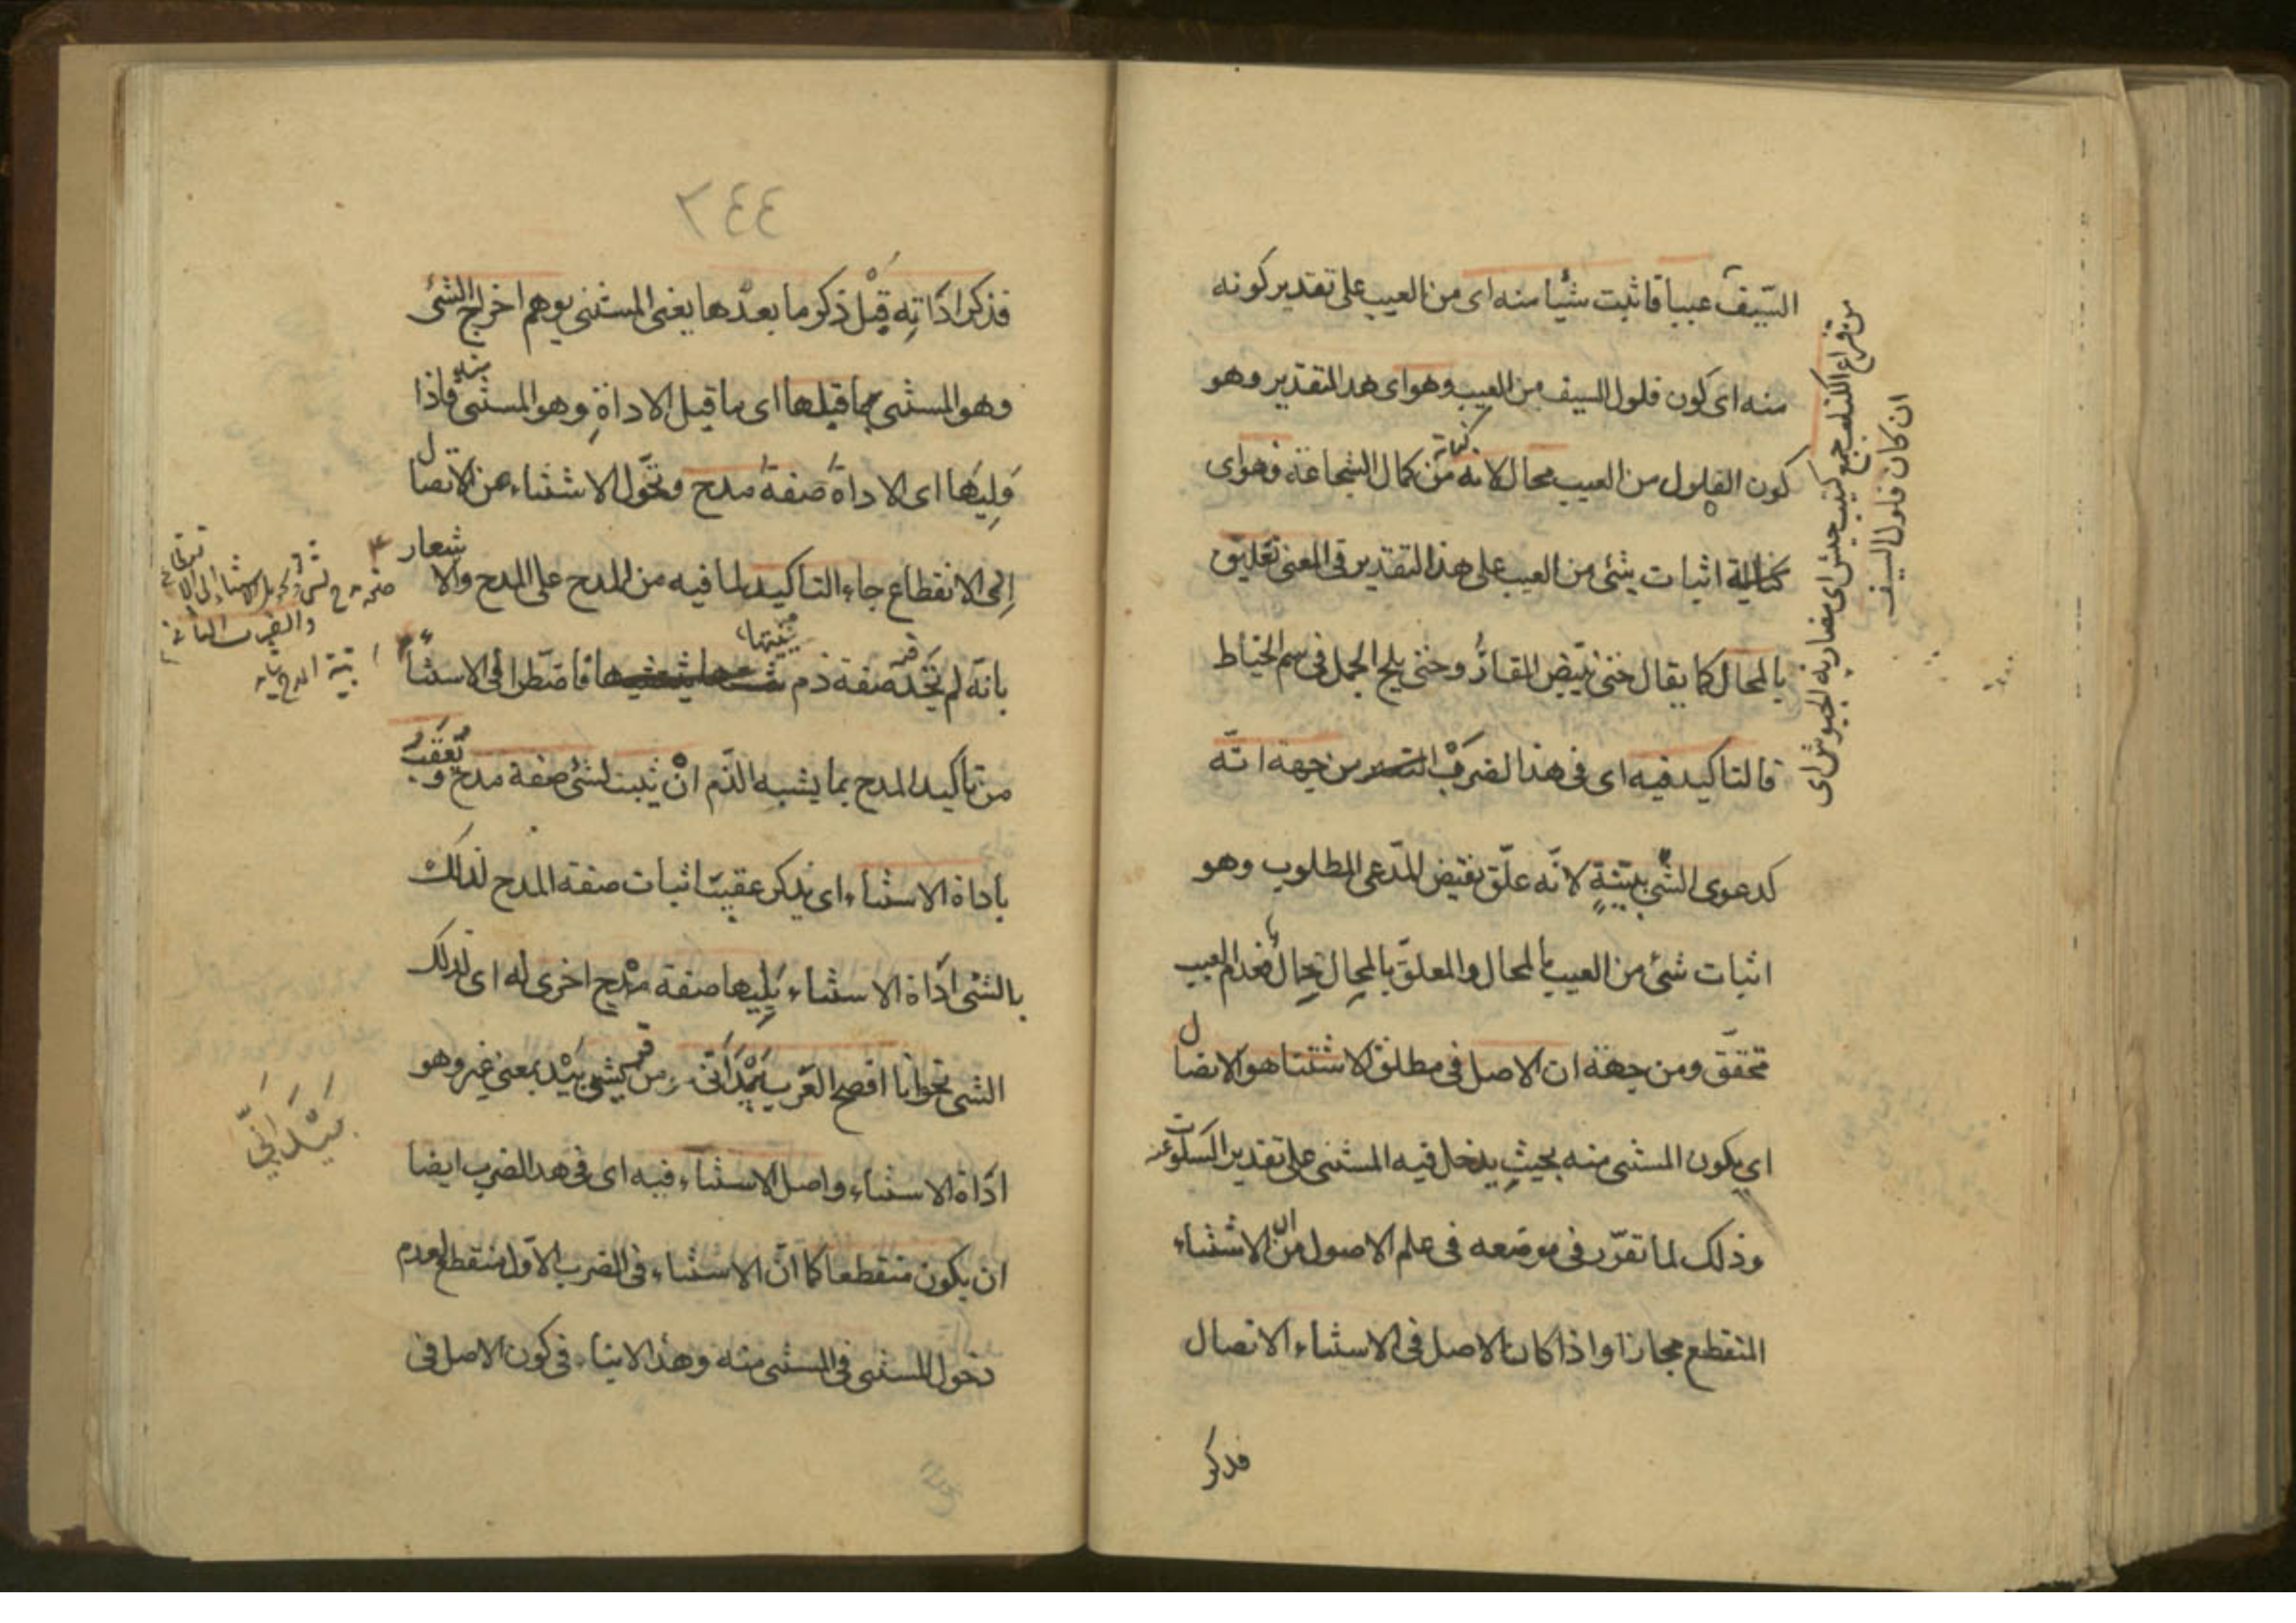 السّيف عيبا فاثبت شيئا منه اى من العيب على تقدير كونه
منه اى كون فلول السيف من العيب وهو اى هذا التقدير وهو
كون الفلول من العيب محال لانه كناية من كمال الشجاعة فهو اى
اثبات شئ من العيب على هذا التقدير فى المعنى تعليق
بالمحال كما يقال حتى يبيّض القارُ وحتى يلج الجمل فى سم الخياط
فالتاكيد فيه اى فى هذا الضرب من جهة انّه
كدعوى الشّئ ببيّنةٍ لانّه علّق نقيض المدّعى المطلوب وهو
اثبات شئ من العيب بالمحال والمعلق بالمحال محال فعدم العيب
محقق ومن جهة ان الاصل فى مطلق الاستثنا هو الاتصال
اى يكون المستثنى منه بحيث يدخل فيه المستثنى على تقدير السكوت عنه
وذلك لما تقرّر فى موضعه فى علم الاصول من ان الاستثناء
المنقطع مجازا واذا كان الاصل فى الاستثناء الاتصال
فذكر
من قراع الكتائب جمع كتيبه جيش اى مضاربة الجيوش اى
ان كان فلول السيف
٢٤٤
فذكر اداتِه قَبْل ذكر ما بعْدها يعنى المستثنى يوهم اخراج الشئ
وهو المستثنى مما قبلها اى ما قبل الاداةِ وهو المستثنى منه فاذا
وَلِيَها اى الاداةَ صفةُ مدح وتحَوّل الاستثناء من الاتصال
اِلى الانقطاع جاء التاكيد لما فيه من المدح على المدح والاشعار
بانّه لم يَجِد صفة ذم يثبتها فاضطر الى الاستثنا
من تاكيد المدح بما يشبه الذّم انْ يثبت لشئ صفة مدح ويُعقَّبُ
باداة الاستثناء اى يذكر عقيب اثبات صفة المدح لذلك
بالشئ اداة الاستثناء يَلِيها صفة مدْح اخرى له اى لذلك
الشئ نحو انا افصح العَرَب بَيْدَ اَنّى من قريش بَيْد بمعنى غير وهو
اداة الاستثناء واصل الاستثناء فيه اى فى هذا الضرب ايضا
ان يكون منقطعا كما انّ الاستثناء فى الضرب الاوّل منقطع لعدم
دخول المستثنى فى المستثنى منه وهذا لاينا فى كون الاصل فى
والضرب الثانى
بَيْدَ اَنّى